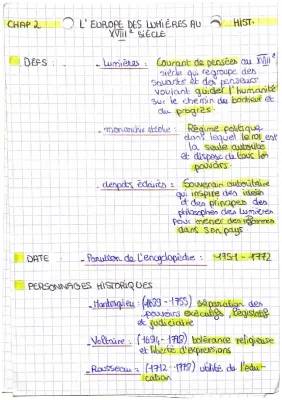 CHAP 2 L'EUROPE DES LUMIÈRES AU HIST.
XVIIIe SIÈCLE
DEFS : - Lumières : Courant de pensées au XVIIIe
siècle qui regroupe des
savants et des penseurs
voulant guider l'humanité
sur le chemin du bonheur et
du progrès.
- monarchie absolue : Régime politique
dans lequel le roi est
la seule autorité
et dispose de tous les
pouvoirs.
- despote éclairé : Souverain autoritaire
qui inspire des idées
et des principes des
philosophes des Lumières
pour mener des réformes
dans son pays
DATE - Parution de l'encyclopédie : 1751 - 1772
PERSONNAGES HISTORIQUES
- Montesquieu : (1689 - 1755) séparation des
pouvoirs exécutifs, législatif
et judiciaire
- Voltaire : (1694 - 1778) tolérance religieuse
et liberté d'expressions
- Rousseau : (1712 - 1778) utilité de l'édu-
cation